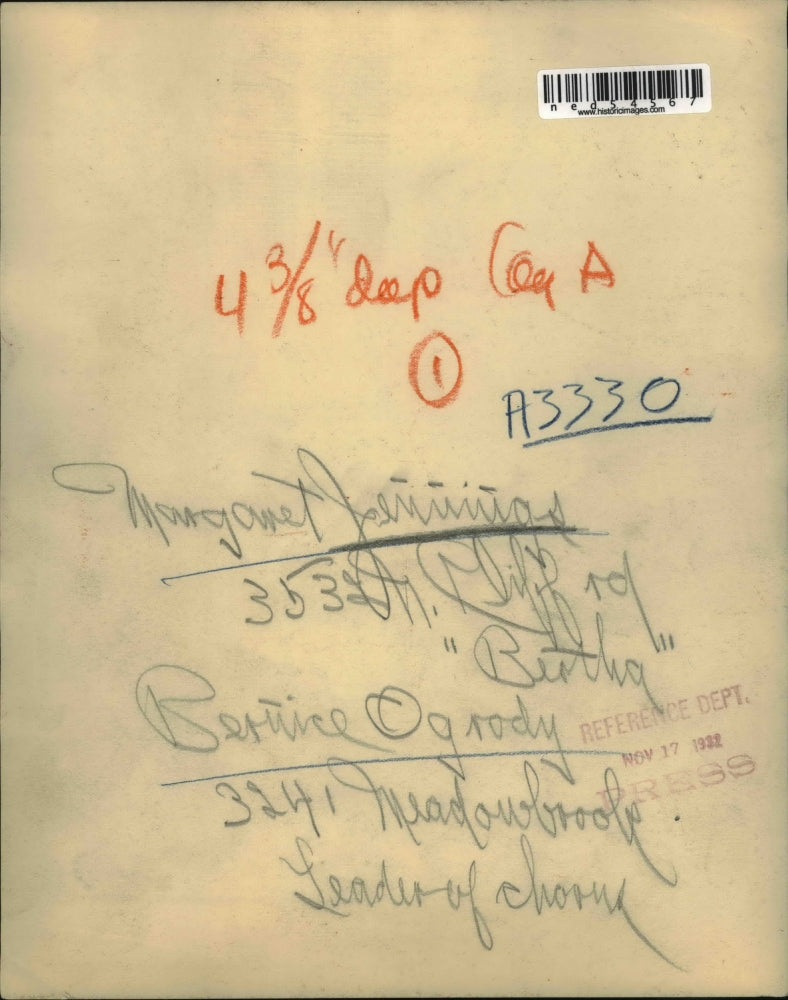 ned54567
www.historicimages.com
4 3/8" deep
A
1
A3330
Margaret Jennings
3532 W. rd
"Bertha"
Bernice Ogrody
REFERENCE DEPT.
NOV 17 1932
PRESS
3241 Meadowbrook
Leader of chorus